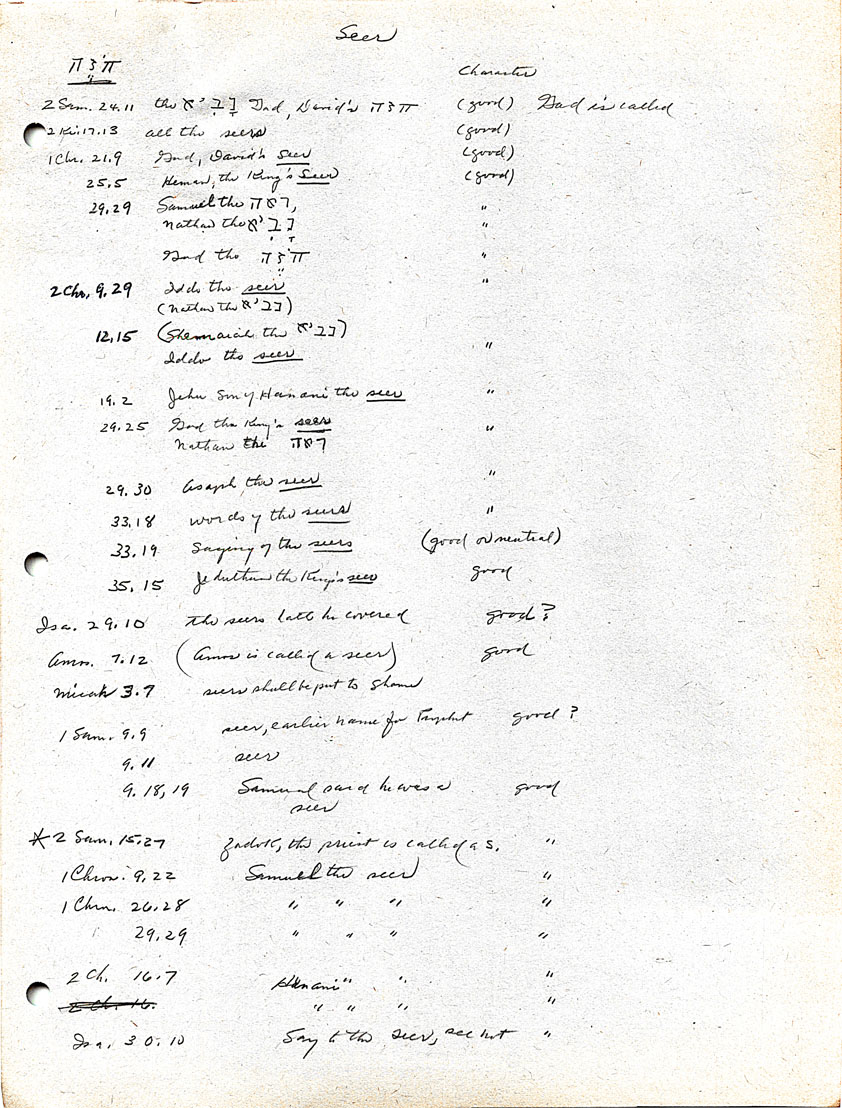 Seer
חֹזֶה Character
2 Sam. 24.11 the נָבִיא Gad, David's חזה (good) Gad is called
2 Ki. 17.13 all the seers (good)
1 Chr. 21.9 Gad, David's Seer (good)
25.5 Heman, the King's Seer (good)
29,29 Samuel the ראה, "
Nathan the נָבִיא "
Gad the חזה "
2 Chr, 9.29 Iddo the seer "
(Nathan the נביא)
12,15 (Shemaiah the נביא)
Iddo the seer "
19.2 Jehu son of Hanani the seer "
29.25 Gad the King's seer "
Nathan the ראה
29.30 Asaph the seer "
33,18 words of the seers "
33,19 Saying of the seers (good or neutral)
35,15 Jeduthun the King's seer good
Isa. 29.10 the seers hath he covered good?
Amos. 7.12 (Amos is called a seer) good
Micah 3.7 seers shall be put to shame
1 Sam. 9.9 seer, earlier name for Prophet good?
9.11 seer
9.18,19 Samuel said he was a good
seer
* 2 Sam. 15.27 Zadok, the priest is called a s. "
1 Chron. 9,22 Samuel the seer "
1 Chrn. 26.28 " " " "
29,29 " " " "
2 Ch. 16.7 Hanani " " "
2 Ch. 16. " " " "
Isa. 30.10 Say to the seer, see not "